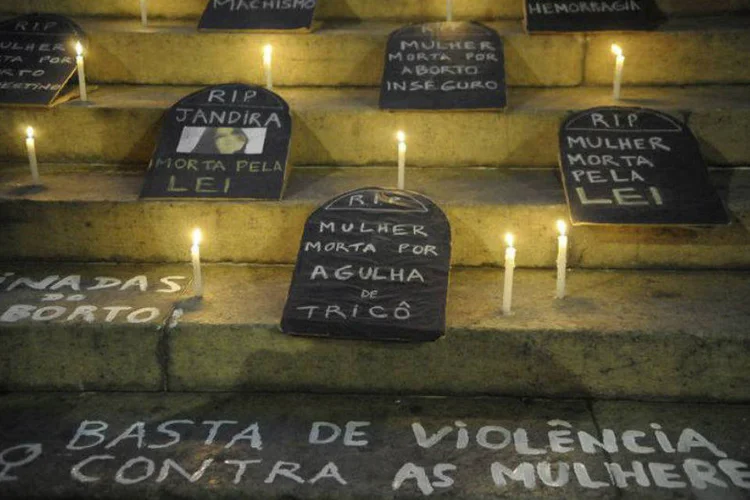 MACHISMO
HEMORRAGIA
RIP
MULHER
MORTA POR
RIP
MULHER
MORTA POR
ABORTO
INSEGURO
RIP
JANDIRA
MORTA PELA
LEI
RIP
MULHER
MORTA
PELA
LEI
RIP
MULHER
MORTA POR
AGULHA
DE
TRICÔ
INADAS
DO
BORTO!
BASTA DE VIOLÊNCIA
CONTRA AS MULHERE